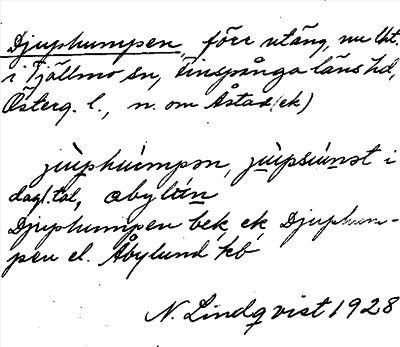 Djuphumpen, förr utäng, nu lht.
i Tjällmo sn, Finspånga läns hd,
Österg. l., n. om Åstad(ek)
jùphùmpən, i
dagl. tal, abylún
Djuphumpen bek, ek, Djuphum-
pen el. Åbylund kb
N. Lindqvist 1928